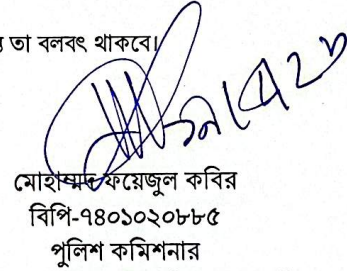 তা বলবৎ থাকবে।
মোহাম্মদ ফয়েজুল কবির
বিপি-৭৪০১০২০৮৮৫
পুলিশ কমিশনার